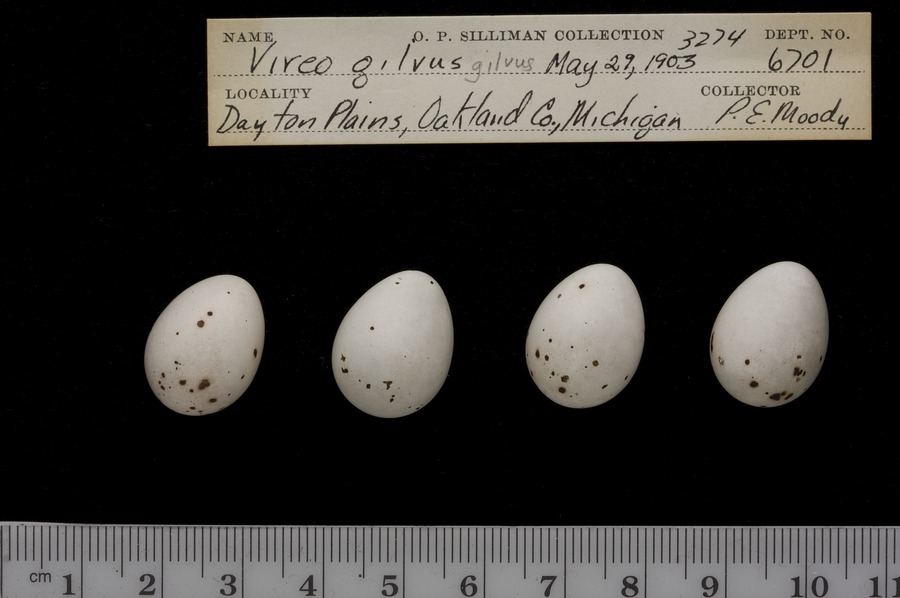 NAME O. P. SILLIMAN COLLECTION 3274 DEPT. NO.
Vireo gilvus gilvus May 29, 1903 6701
LOCALITY COLLECTOR
Dayton Plains, Oakland Co., Michigan P. E. Moody
cm 1 2 3 4 5 6 7 8 9 10 11